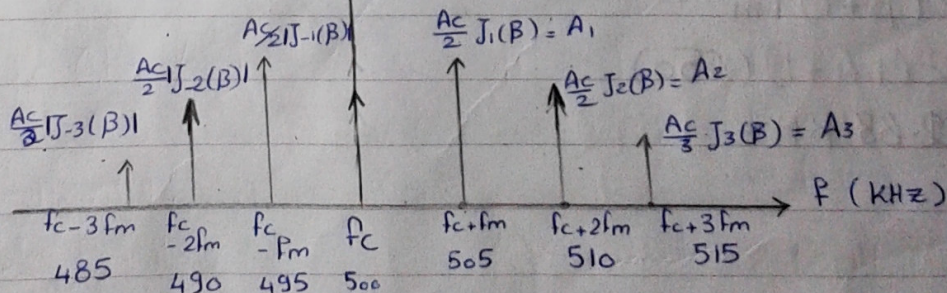 Ac/2 |J-1(β)|
Ac/2 J1(β) = A1
Ac/2 |J-2(β)|
Ac/2 J2(β) = A2
Ac/2 |J-3(β)|
Ac/3 J3(β) = A3
f (KHz)
fc-3fm
fc-2fm
fc-fm
fc
fc+fm
fc+2fm
fc+3fm
485
490
495
500
505
510
515